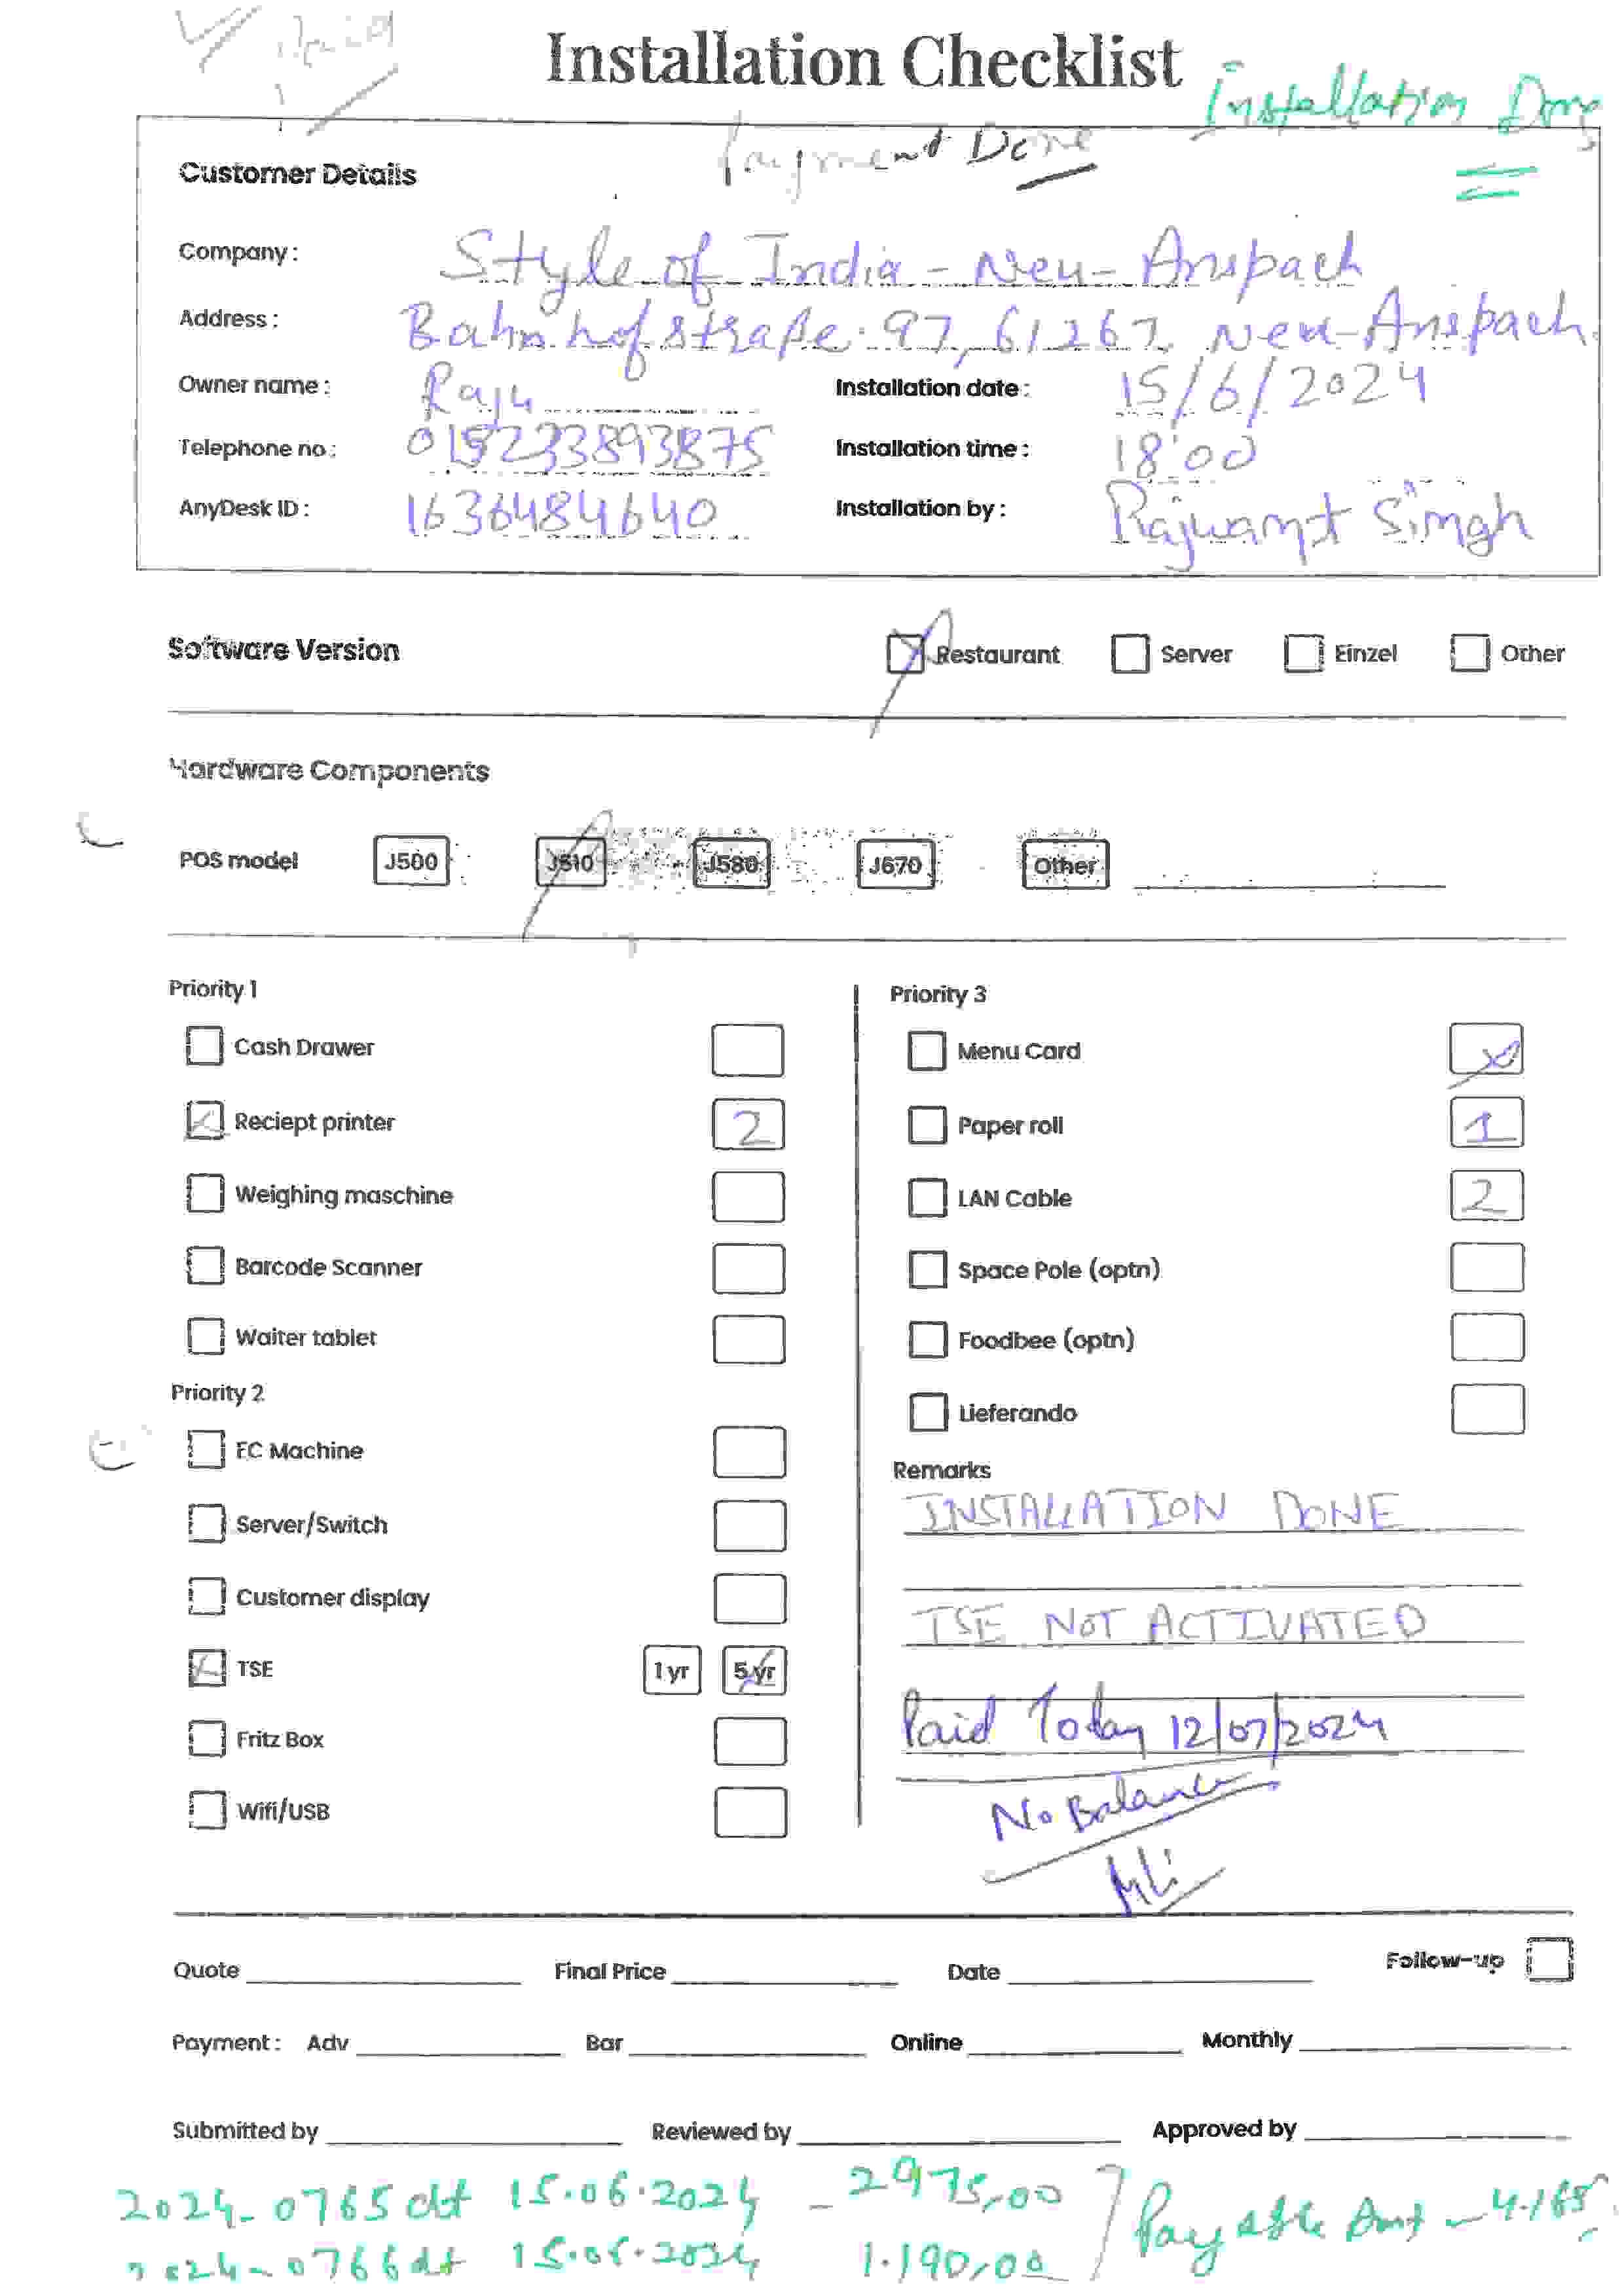 Paid
Installation Checklist
Installation Done
Payment Done
Customer Details
Company: Style of India - Neu-Anspach
Address: Bahnhofstraße 97, 61267 Neu-Anspach
Owner name: Raju Installation date: 15/6/2024
Telephone no: 015233893875 Installation time: 18:00
AnyDesk ID: 1636484640 Installation by: Rajwant Singh
Software Version Restaurant Server Einzel Other
Hardware Components
POS model J500 J510 J580 J670 Other
Priority 1
Cash Drawer
Reciept printer 2
Weighing maschine
Barcode Scanner
Waiter tablet
Priority 2
EC Machine
Server/Switch
Customer display
TSE 1 yr 5 yr
Fritz Box
Wifi/USB
Priority 3
Menu Card
Paper roll 1
LAN Cable 2
Space Pole (optn)
Foodbee (optn)
Lieferando
Remarks
INSTALLATION DONE
TSE NOT ACTIVATED
Paid Today 12/07/2024
No Balance
Quote Final Price Date Follow-up
Payment: Adv Bar Online Monthly
Submitted by Reviewed by Approved by
2024-0765 dt 15.06.2024 - 2975,00
2024-0766 dt 15.06.2024 1.190,00
Payable Amt - 4.165